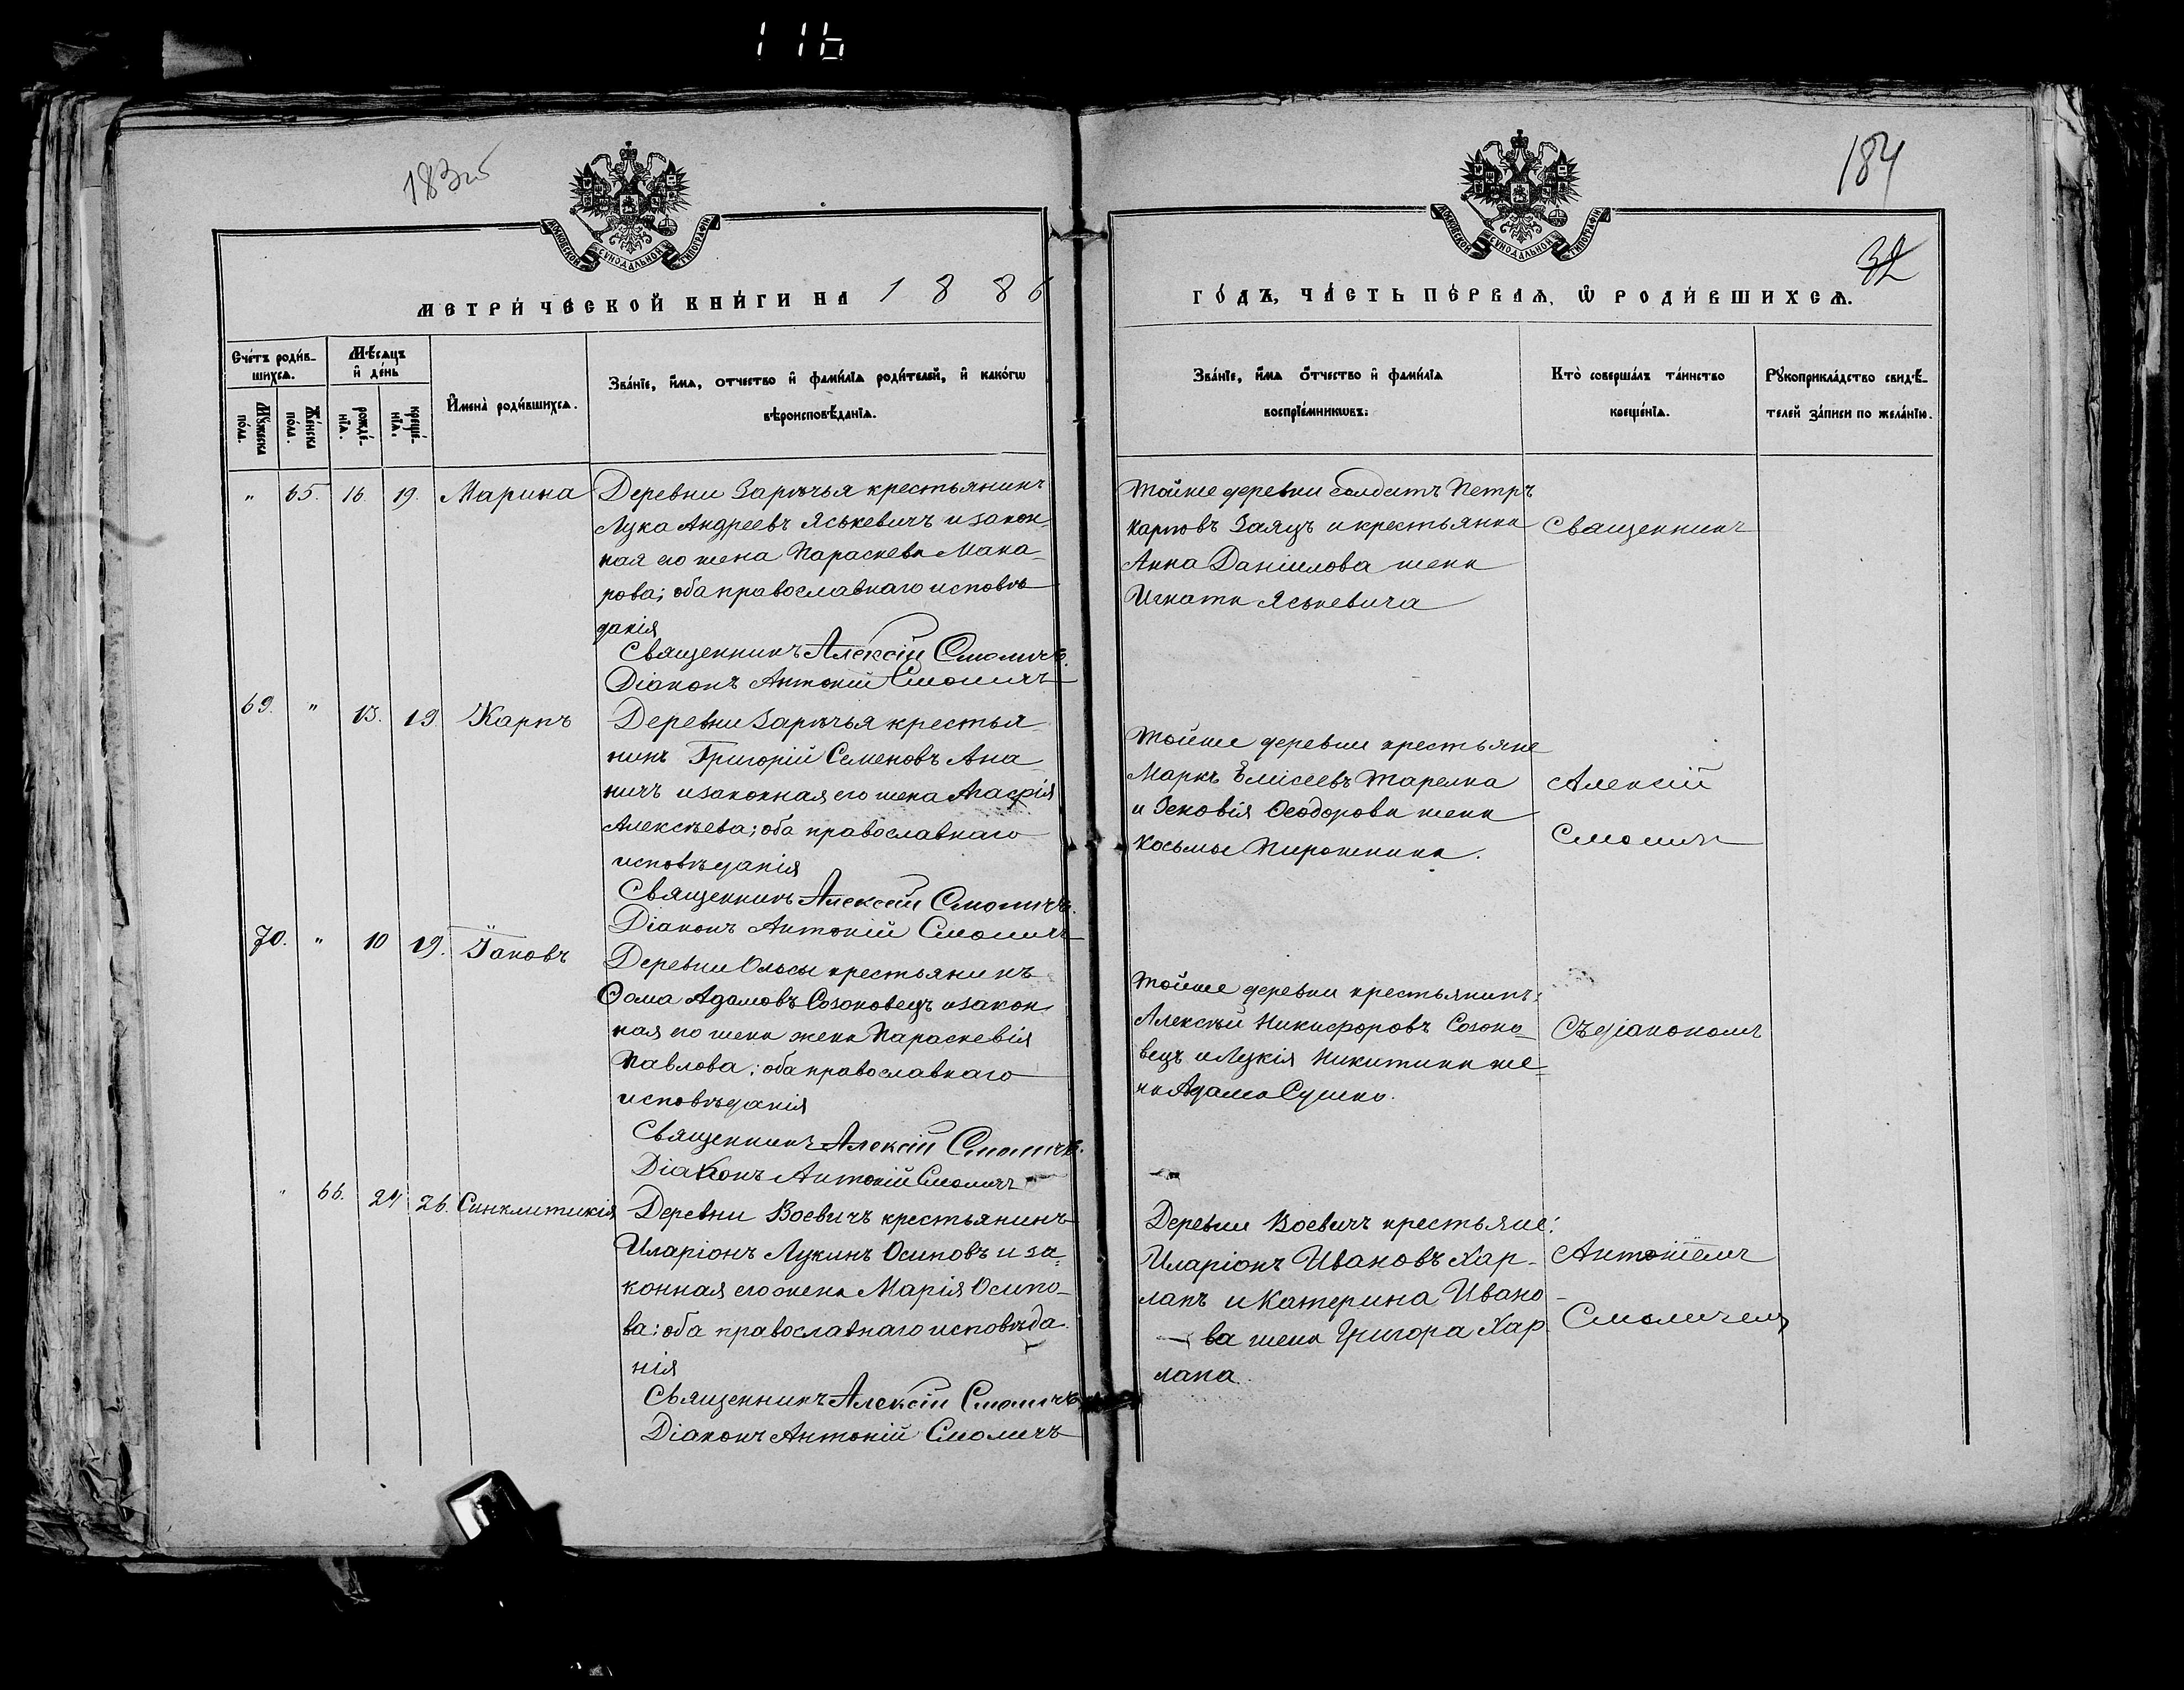 116
183об
184
32
МОСКОВСКОЙ СѴНОДАЛЬНОЙ ТИПОГРАФІИ
МОСКОВСКОЙ СѴНОДАЛЬНОЙ ТИПОГРАФІИ
МЕТРИ́ЧЕСКОЙ КНИ́ГИ НА 1886
ГО́ДЪ, ЧА́СТЬ ПЕ́РВАѦ, Ѡ҆ РОДИ́ВШИХСѦ.
Сче́тъ роди́в-
шихсѧ.
Мꙋ́жеска
по́ла.
Же́нска
по́ла.
Мѣ́сѧцъ
и҆ де́нь
рожде́-
нїѧ.
креще́-
нїѧ.
И҆мена̀ роди́вшихсѧ.
Зва́нїе, и҆́мѧ, ѻ҆́тчество и҆ фами́лїѧ роди́телей, и҆ како́гѡ
вѣроисповѣ́данїѧ.
Зва́нїе, и҆́мѧ ѻ҆́тчество и҆ фами́лїѧ
воспрїе́мникѡвъ:
Кто̀ соверша́лъ та́инство
креще́нїѧ.
Рꙋкоприкла́дство свидѣ́-
телей за́писи по жела́нїю.
" 65. 16. 19. Марина
Деревни Зарѣчья крестьянинъ
Лука Андреевъ Яськевичъ и закон-
ная его жена Параскева Мака-
рова; оба православнаго исповѣ
данія
Священникъ Алексій Смоличъ.
Діаконъ Антоній Смоличъ
Тойже деревни солдатъ Петръ
Карповъ Заяцъ и крестьянка
Анна Даніилова жена
Игната Яськевича
Священникъ
69. " 13. 19. Карпъ
Деревни Зарѣчья крестья-
нинъ Григорій Семеновъ Ана-
ничъ и законная его жена Агафія
Алексѣева; оба православнаго
исповѣданія
Священникъ Алексій Смоличъ.
Діаконъ Антоній Смоличъ
Тойже деревни крестьяне
Маркъ Елісеевъ Тарелка
и Зеновія Ѳеодорова жена
Косьмы
Алексій
Смоличъ
70. " 10 19. Іаковъ
Деревни Ольсы крестьянинъ
Ѳома Адамовъ Созоновецъ и закон
ная его жена жена Параскевія
Павлова; оба православнаго
исповѣданія
Священникъ Алексій Смоличъ.
Діаконъ Антоній Смоличъ
Тойже деревни крестьянинъ:
Алексѣй Никифоровъ Созоно-
вецъ и Лукія Никитина же-
на Адама Сушко.
Съ діакономъ
" 66. 24 26. Синклитикія
Деревни Воевичъ крестьянинъ
Иларіонъ Лукинъ Осиповъ и за-
конная его жена Марія Осипо-
ва; оба православнаго исповѣда
нія
Священникъ Алексій Смоличъ
Діаконъ Антоній Смоличъ
Деревни Воевичъ крестьяне:
Иларіонъ Ивановъ Хар-
лапъ и Катерина Ивано-
ва жена Григора Хар
лапа.
Антоніемъ
Смоличемъ